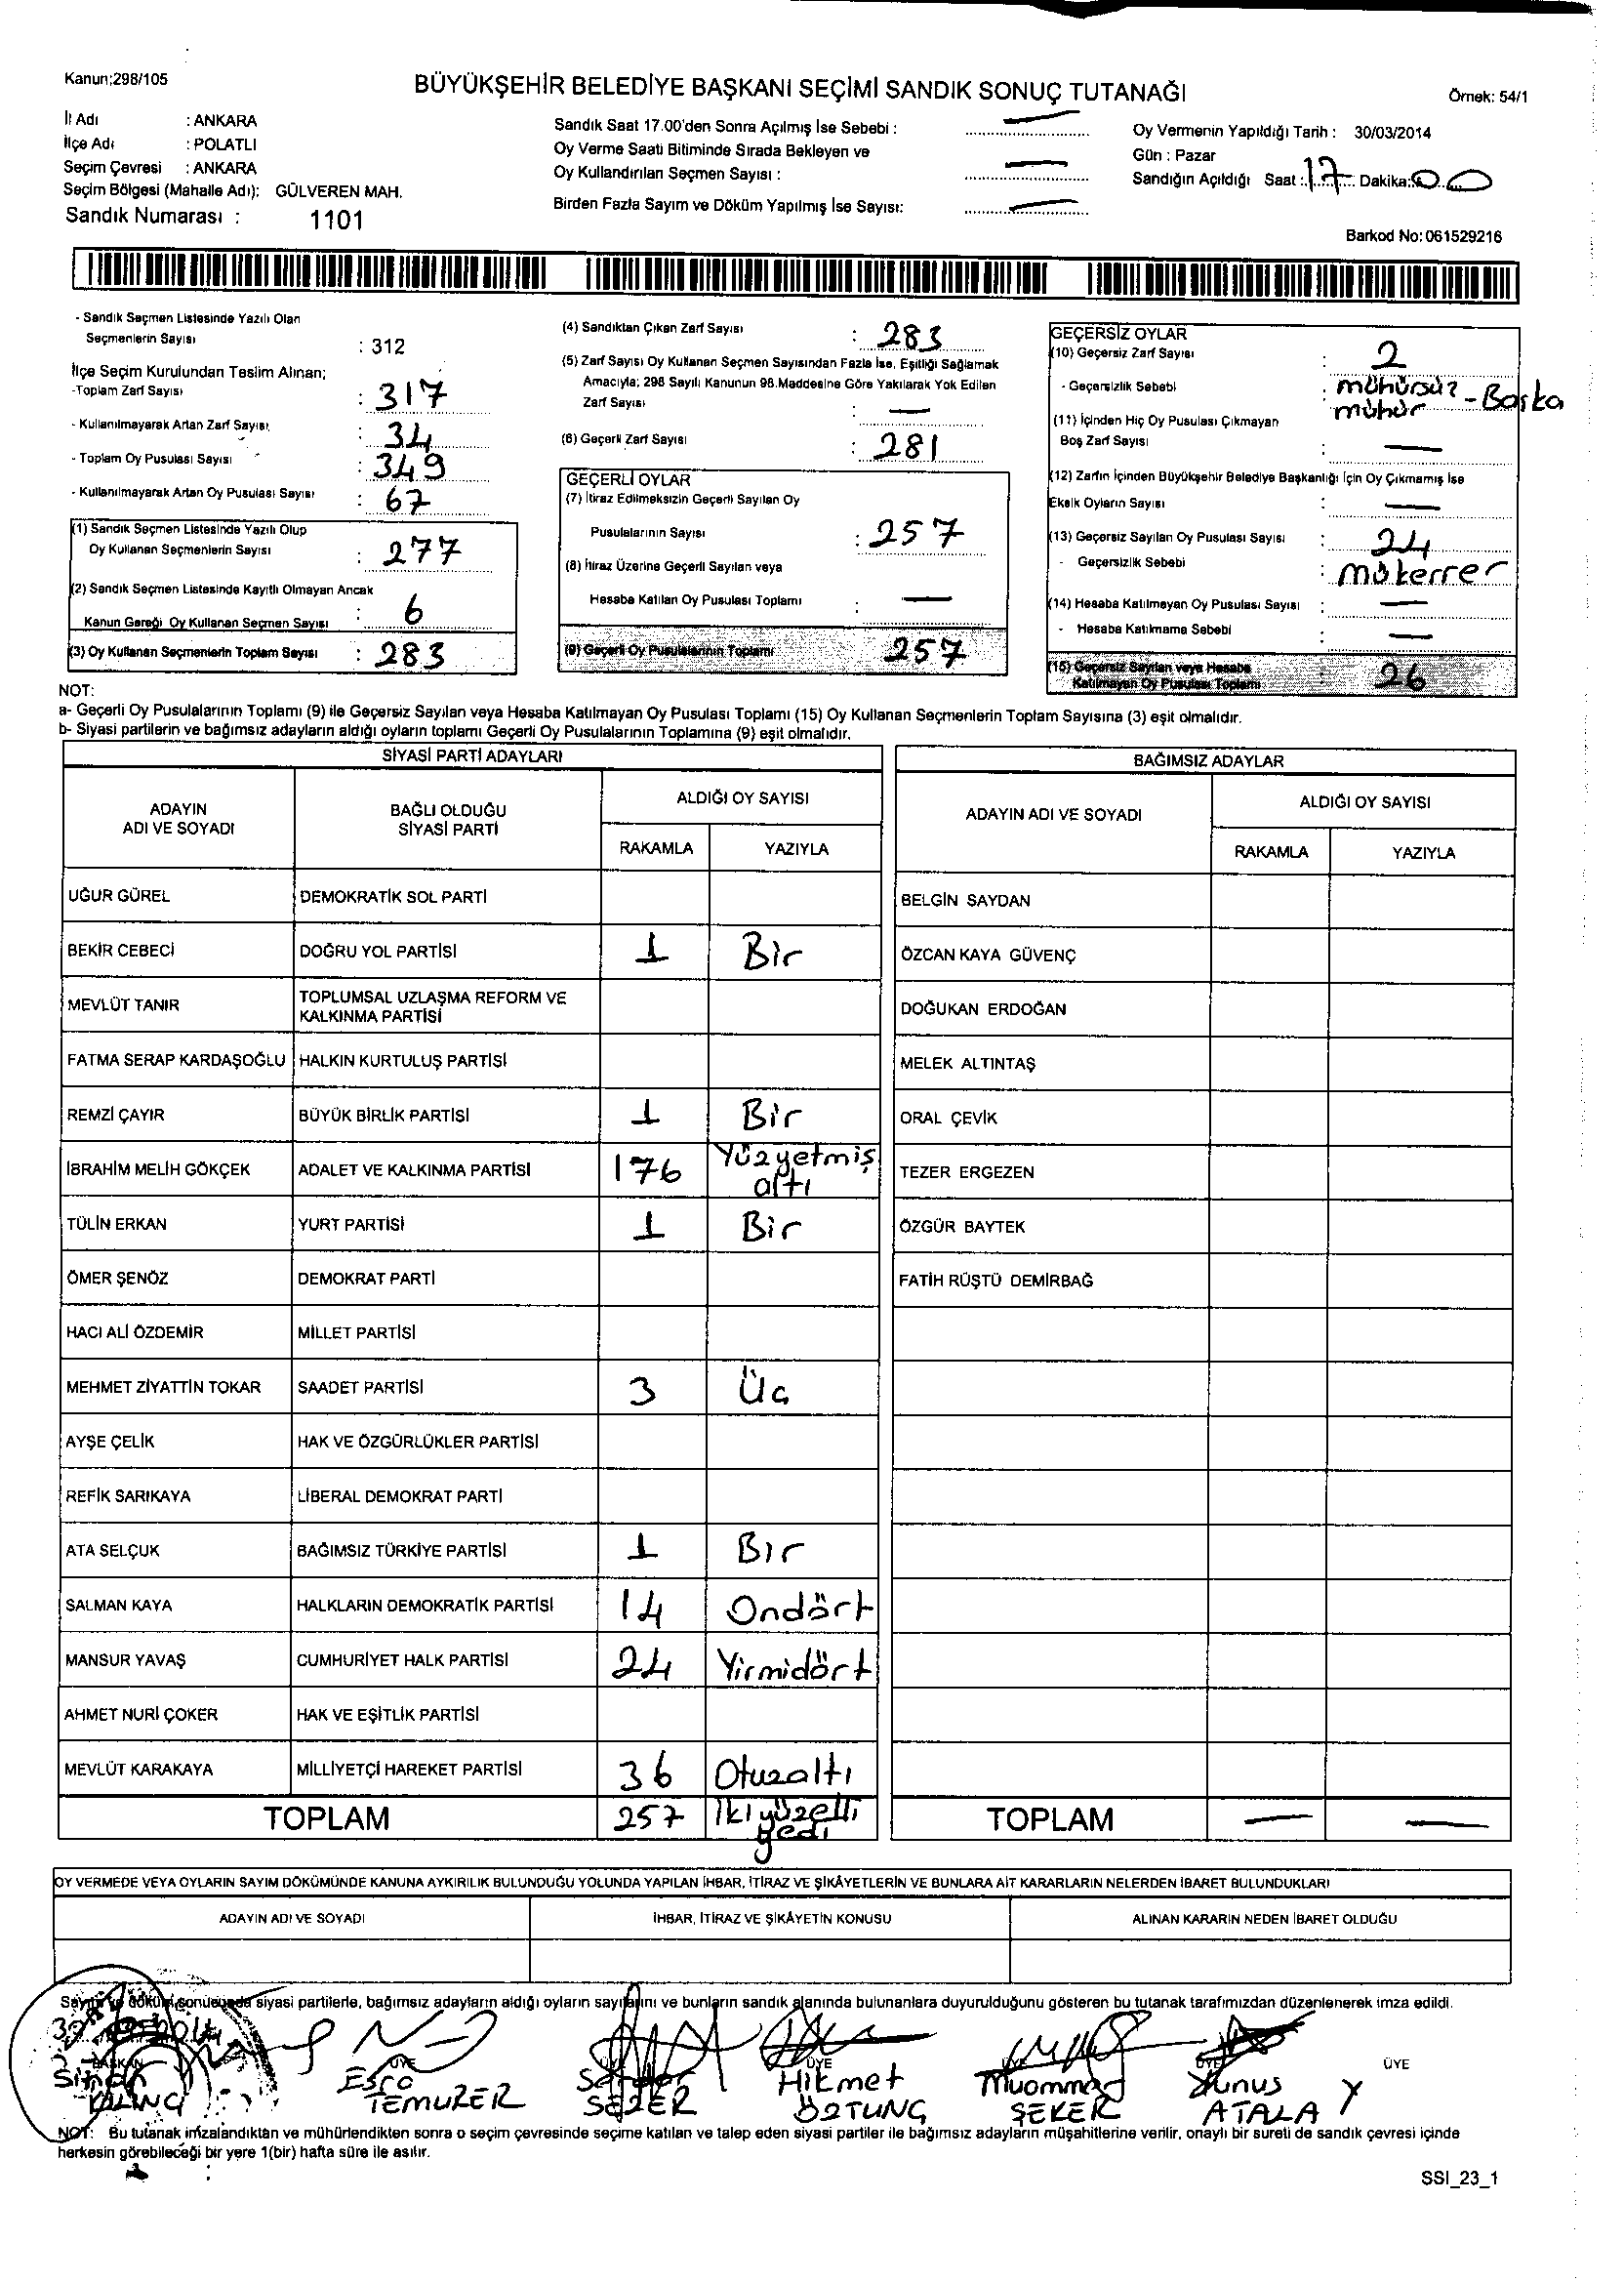 Kanun;298/105
BÜYÜKŞEHİR BELEDİYE BAŞKANI SEÇİMİ SANDIK SONUÇ TUTANAĞI
Örnek: 54/1
İl Adı : ANKARA
İlçe Adı : POLATLI
Seçim Çevresi : ANKARA
Seçim Bölgesi (Mahalle Adı): GÜLVEREN MAH.
Sandık Numarası : 1101
Sandık Saat 17.00'den Sonra Açılmış İse Sebebi : —
Oy Verme Saati Bitiminde Sırada Bekleyen ve
Oy Kullandırılan Seçmen Sayısı : —
Birden Fazla Sayım ve Döküm Yapılmış İse Sayısı: —
Oy Vermenin Yapıldığı Tarih : 30/03/2014
Gün : Pazar
Sandığın Açıldığı Saat : 17 Dakika: 00
Barkod No: 061529216
- Sandık Seçmen Listesinde Yazılı Olan
Seçmenlerin Sayısı : 312
İlçe Seçim Kurulundan Teslim Alınan;
-Toplam Zarf Sayısı : 317
- Kullanılmayarak Artan Zarf Sayısı : 34
- Toplam Oy Pusulası Sayısı : 349
- Kullanılmayarak Artan Oy Pusulası Sayısı : 67
(1) Sandık Seçmen Listesinde Yazılı Olup
Oy Kullanan Seçmenlerin Sayısı : 277
(2) Sandık Seçmen Listesinde Kayıtlı Olmayan Ancak
Kanun Gereği Oy Kullanan Seçmen Sayısı : 6
(3) Oy Kullanan Seçmenlerin Toplam Sayısı : 283
(4) Sandıktan Çıkan Zarf Sayısı : 283
(5) Zarf Sayısı Oy Kullanan Seçmen Sayısından Fazla İse, Eşitliği Sağlamak
Amacıyla; 298 Sayılı Kanunun 98.Maddesine Göre Yakılarak Yok Edilen
Zarf Sayısı : —
(6) Geçerli Zarf Sayısı : 281
GEÇERLİ OYLAR
(7) İtiraz Edilmeksizin Geçerli Sayılan Oy
Pusulalarının Sayısı : 257
(8) İtiraz Üzerine Geçerli Sayılan veya
Hesaba Katılan Oy Pusulası Toplamı : —
(9) Geçerli Oy Pusulalarının Toplamı 257
GEÇERSİZ OYLAR
(10) Geçersiz Zarf Sayısı : 2
- Geçersizlik Sebebi : mühürsüz - Başka
mühür
(11) İçinden Hiç Oy Pusulası Çıkmayan
Boş Zarf Sayısı : —
(12) Zarfın İçinden Büyükşehir Belediye Başkanlığı İçin Oy Çıkmamış İse
Eksik Oyların Sayısı : —
(13) Geçersiz Sayılan Oy Pusulası Sayısı : 24
- Geçersizlik Sebebi : mükerrer
(14) Hesaba Katılmayan Oy Pusulası Sayısı : —
- Hesaba Katılmama Sebebi : —
(15) Geçersiz Sayılan veya Hesaba
Katılmayan Oy Pusulası Toplamı : 26
NOT:
a- Geçerli Oy Pusulalarının Toplamı (9) ile Geçersiz Sayılan veya Hesaba Katılmayan Oy Pusulası Toplamı (15) Oy Kullanan Seçmenlerin Toplam Sayısına (3) eşit olmalıdır.
b- Siyasi partilerin ve bağımsız adayların aldığı oyların toplamı Geçerli Oy Pusulalarının Toplamına (9) eşit olmalıdır.
SİYASİ PARTİ ADAYLARI
ADAYIN
ADI VE SOYADI
BAĞLI OLDUĞU
SİYASİ PARTİ
ALDIĞI OY SAYISI
RAKAMLA YAZIYLA
UĞUR GÜREL DEMOKRATİK SOL PARTİ
BEKİR CEBECİ DOĞRU YOL PARTİSİ 1 Bir
MEVLÜT TANIR TOPLUMSAL UZLAŞMA REFORM VE
KALKINMA PARTİSİ
FATMA SERAP KARDAŞOĞLU HALKIN KURTULUŞ PARTİSİ
REMZİ ÇAYIR BÜYÜK BİRLİK PARTİSİ 1 Bir
İBRAHİM MELİH GÖKÇEK ADALET VE KALKINMA PARTİSİ 176 Yüzyetmiş
altı
TÜLİN ERKAN YURT PARTİSİ 1 Bir
ÖMER ŞENÖZ DEMOKRAT PARTİ
HACI ALİ ÖZDEMİR MİLLET PARTİSİ
MEHMET ZİYATTİN TOKAR SAADET PARTİSİ 3 Üç
AYŞE ÇELİK HAK VE ÖZGÜRLÜKLER PARTİSİ
REFİK SARIKAYA LİBERAL DEMOKRAT PARTİ
ATA SELÇUK BAĞIMSIZ TÜRKİYE PARTİSİ 1 Bir
SALMAN KAYA HALKLARIN DEMOKRATİK PARTİSİ 14 Ondört
MANSUR YAVAŞ CUMHURİYET HALK PARTİSİ 24 Yirmidört
AHMET NURİ ÇOKER HAK VE EŞİTLİK PARTİSİ
MEVLÜT KARAKAYA MİLLİYETÇİ HAREKET PARTİSİ 36 Otuzaltı
TOPLAM 257 İkiyüzelli
yedi
BAĞIMSIZ ADAYLAR
ADAYIN ADI VE SOYADI
ALDIĞI OY SAYISI
RAKAMLA YAZIYLA
BELGİN SAYDAN
ÖZCAN KAYA GÜVENÇ
DOĞUKAN ERDOĞAN
MELEK ALTINTAŞ
ORAL ÇEVİK
TEZER ERGEZEN
ÖZGÜR BAYTEK
FATİH RÜŞTÜ DEMİRBAĞ
TOPLAM — —
OY VERMEDE VEYA OYLARIN SAYIM DÖKÜMÜNDE KANUNA AYKIRILIK BULUNDUĞU YOLUNDA YAPILAN İHBAR, İTİRAZ VE ŞİKÂYETLERİN VE BUNLARA AİT KARARLARIN NELERDEN İBARET BULUNDUKLARI
ADAYIN ADI VE SOYADI İHBAR, İTİRAZ VE ŞİKÂYETİN KONUSU ALINAN KARARIN NEDEN İBARET OLDUĞU
Sayım ve döküm sonucunda siyasi partilerle, bağımsız adayların aldığı oyların sayılarını ve bunların sandık alanında bulunanlara duyurulduğunu gösteren bu tutanak tarafımızdan düzenlenerek imza edildi.
BAŞKAN ÜYE ÜYE ÜYE ÜYE ÜYE ÜYE
Sinan Esra Hikmet Muammer Yunus
KILINÇ TEMURER SEZER ÖZTUNÇ ŞEKER ATALAY
NOT: Bu tutanak imzalandıktan ve mühürlendikten sonra o seçim çevresinde seçime katılan ve talep eden siyasi partiler ile bağımsız adayların müşahitlerine verilir, onaylı bir sureti de sandık çevresi içinde
herkesin görebileceği bir yere 1(bir) hafta süre ile asılır.
SSI_23_1